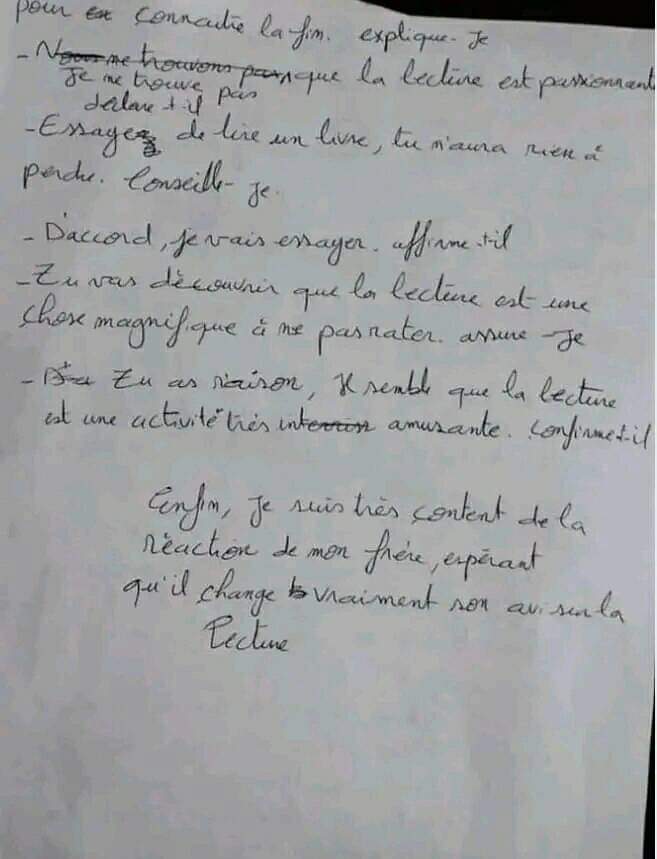 pour en connaitre la fin. explique-je
- Nous me trouvons pas que la lecture est passionnante
Je me trouve pas
déclare t-il
- Essayez de lire un livre, tu n'aura rien à
perdre. Conseille-je.
- D'accord, je vais essayer. affirme-t-il
- Tu vas découvrir que la lecture est une
chose magnifique à ne pas rater. assure-je
- Tu as raison, Il semble que la lecture
est une activité très amusante. confirme t-il
Enfin, je suis très content de la
réaction de mon frère, espérant
qu'il change vraiment son avi sur la
lecture